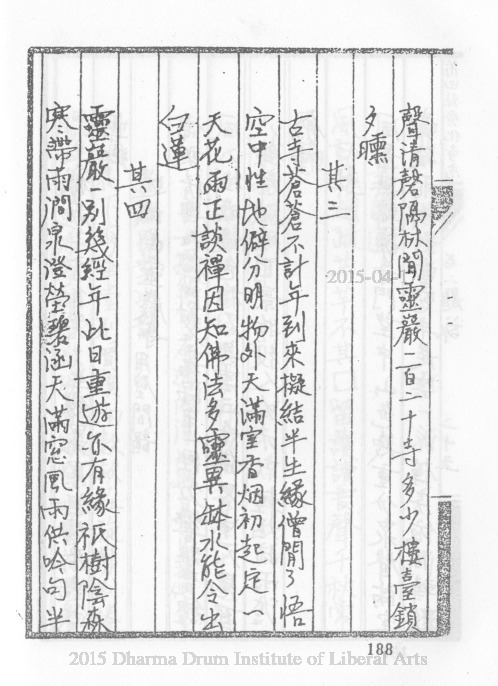 聲清磬隔林聞靈巖一百二十寺多少樓臺鎖
夕曛
其三
古寺蒼蒼不計年到來擬結半生緣僧閒了悟
空中性地僻分明物外天滿室香烟初起定一
天花雨正談禪因知佛法多靈異缽水能令出
白蓮
其四
靈巖一別幾經年此日重遊亦有緣祇樹陰森
寒帶雨澗泉澄瑩碧涵天滿窓風雨供吟句半
188
2015-04-
2015 Dharma Drum Institute of Liberal Arts